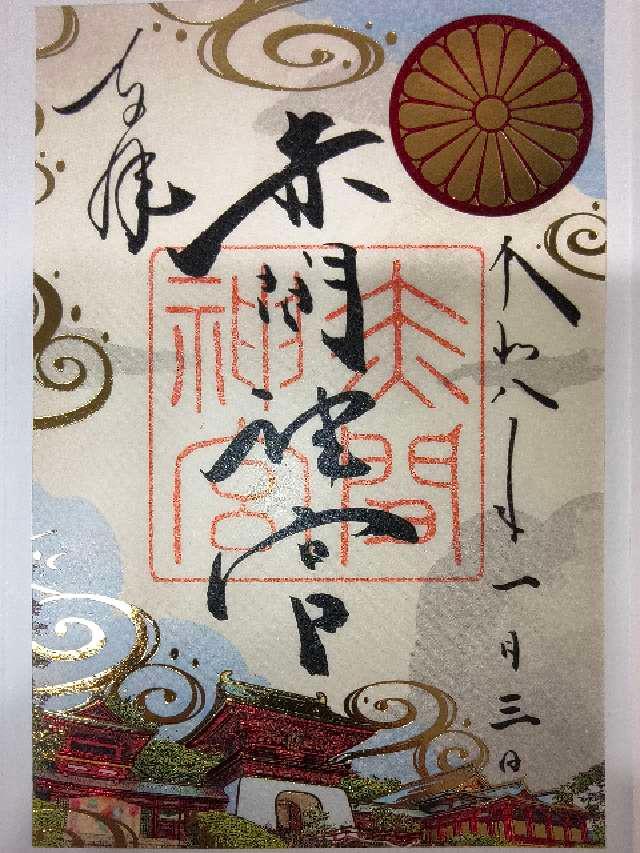 令和八年一月三日
赤間神宮
赤間
神宮
奉拝